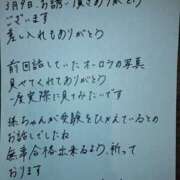 3月9日、お誘い頂きありがとう
ございます
差し入れもありがとう
前回話していたオーロラの写真
見せてくれてありがとう
一度実際に見てみたいです
孫ちゃんが受験をひかえているとの
お話でしたね
無事合格出来るよう、祈って
おります